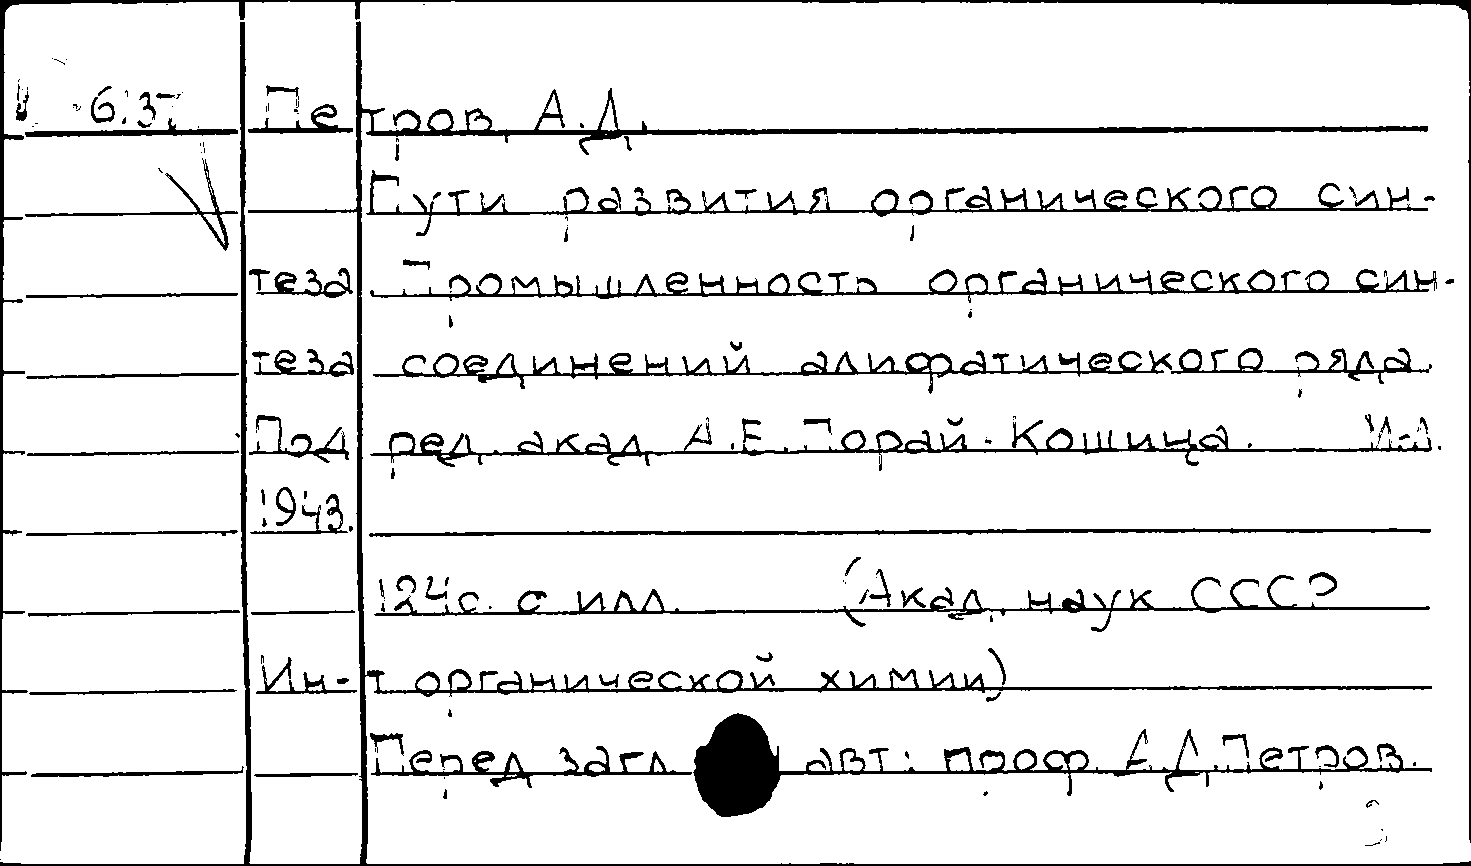 Петров, А.Д.
Пути развития органического син-
теза. Промышленность органического син-
теза соединений алифатического ряда.
Под ред. акад. А.Е. Порай-Кошица. М-Л.
1943.
124с. с илл. (Акад. наук СССР
Ин-т органической химии)
Перед загл. авт: проф. А.Д. Петров.